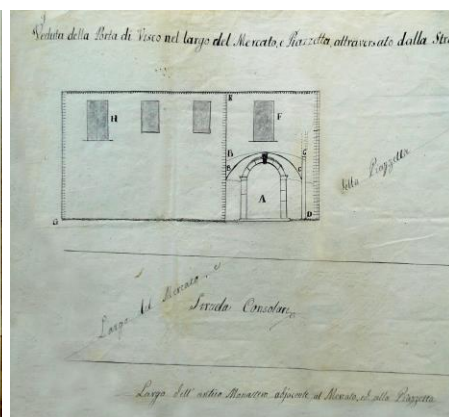 Veduta della Porta di Visco nel largo del Mercato, e Piazzetta, attraversato dalla Stra
K
H
F
B
G
E
C
A
G
D
della Piazzetta
Largo del Mercato, e
Strada Consolare
Largo dell' antico Monastero adjacente al Mercato, ed alla Piazzetta